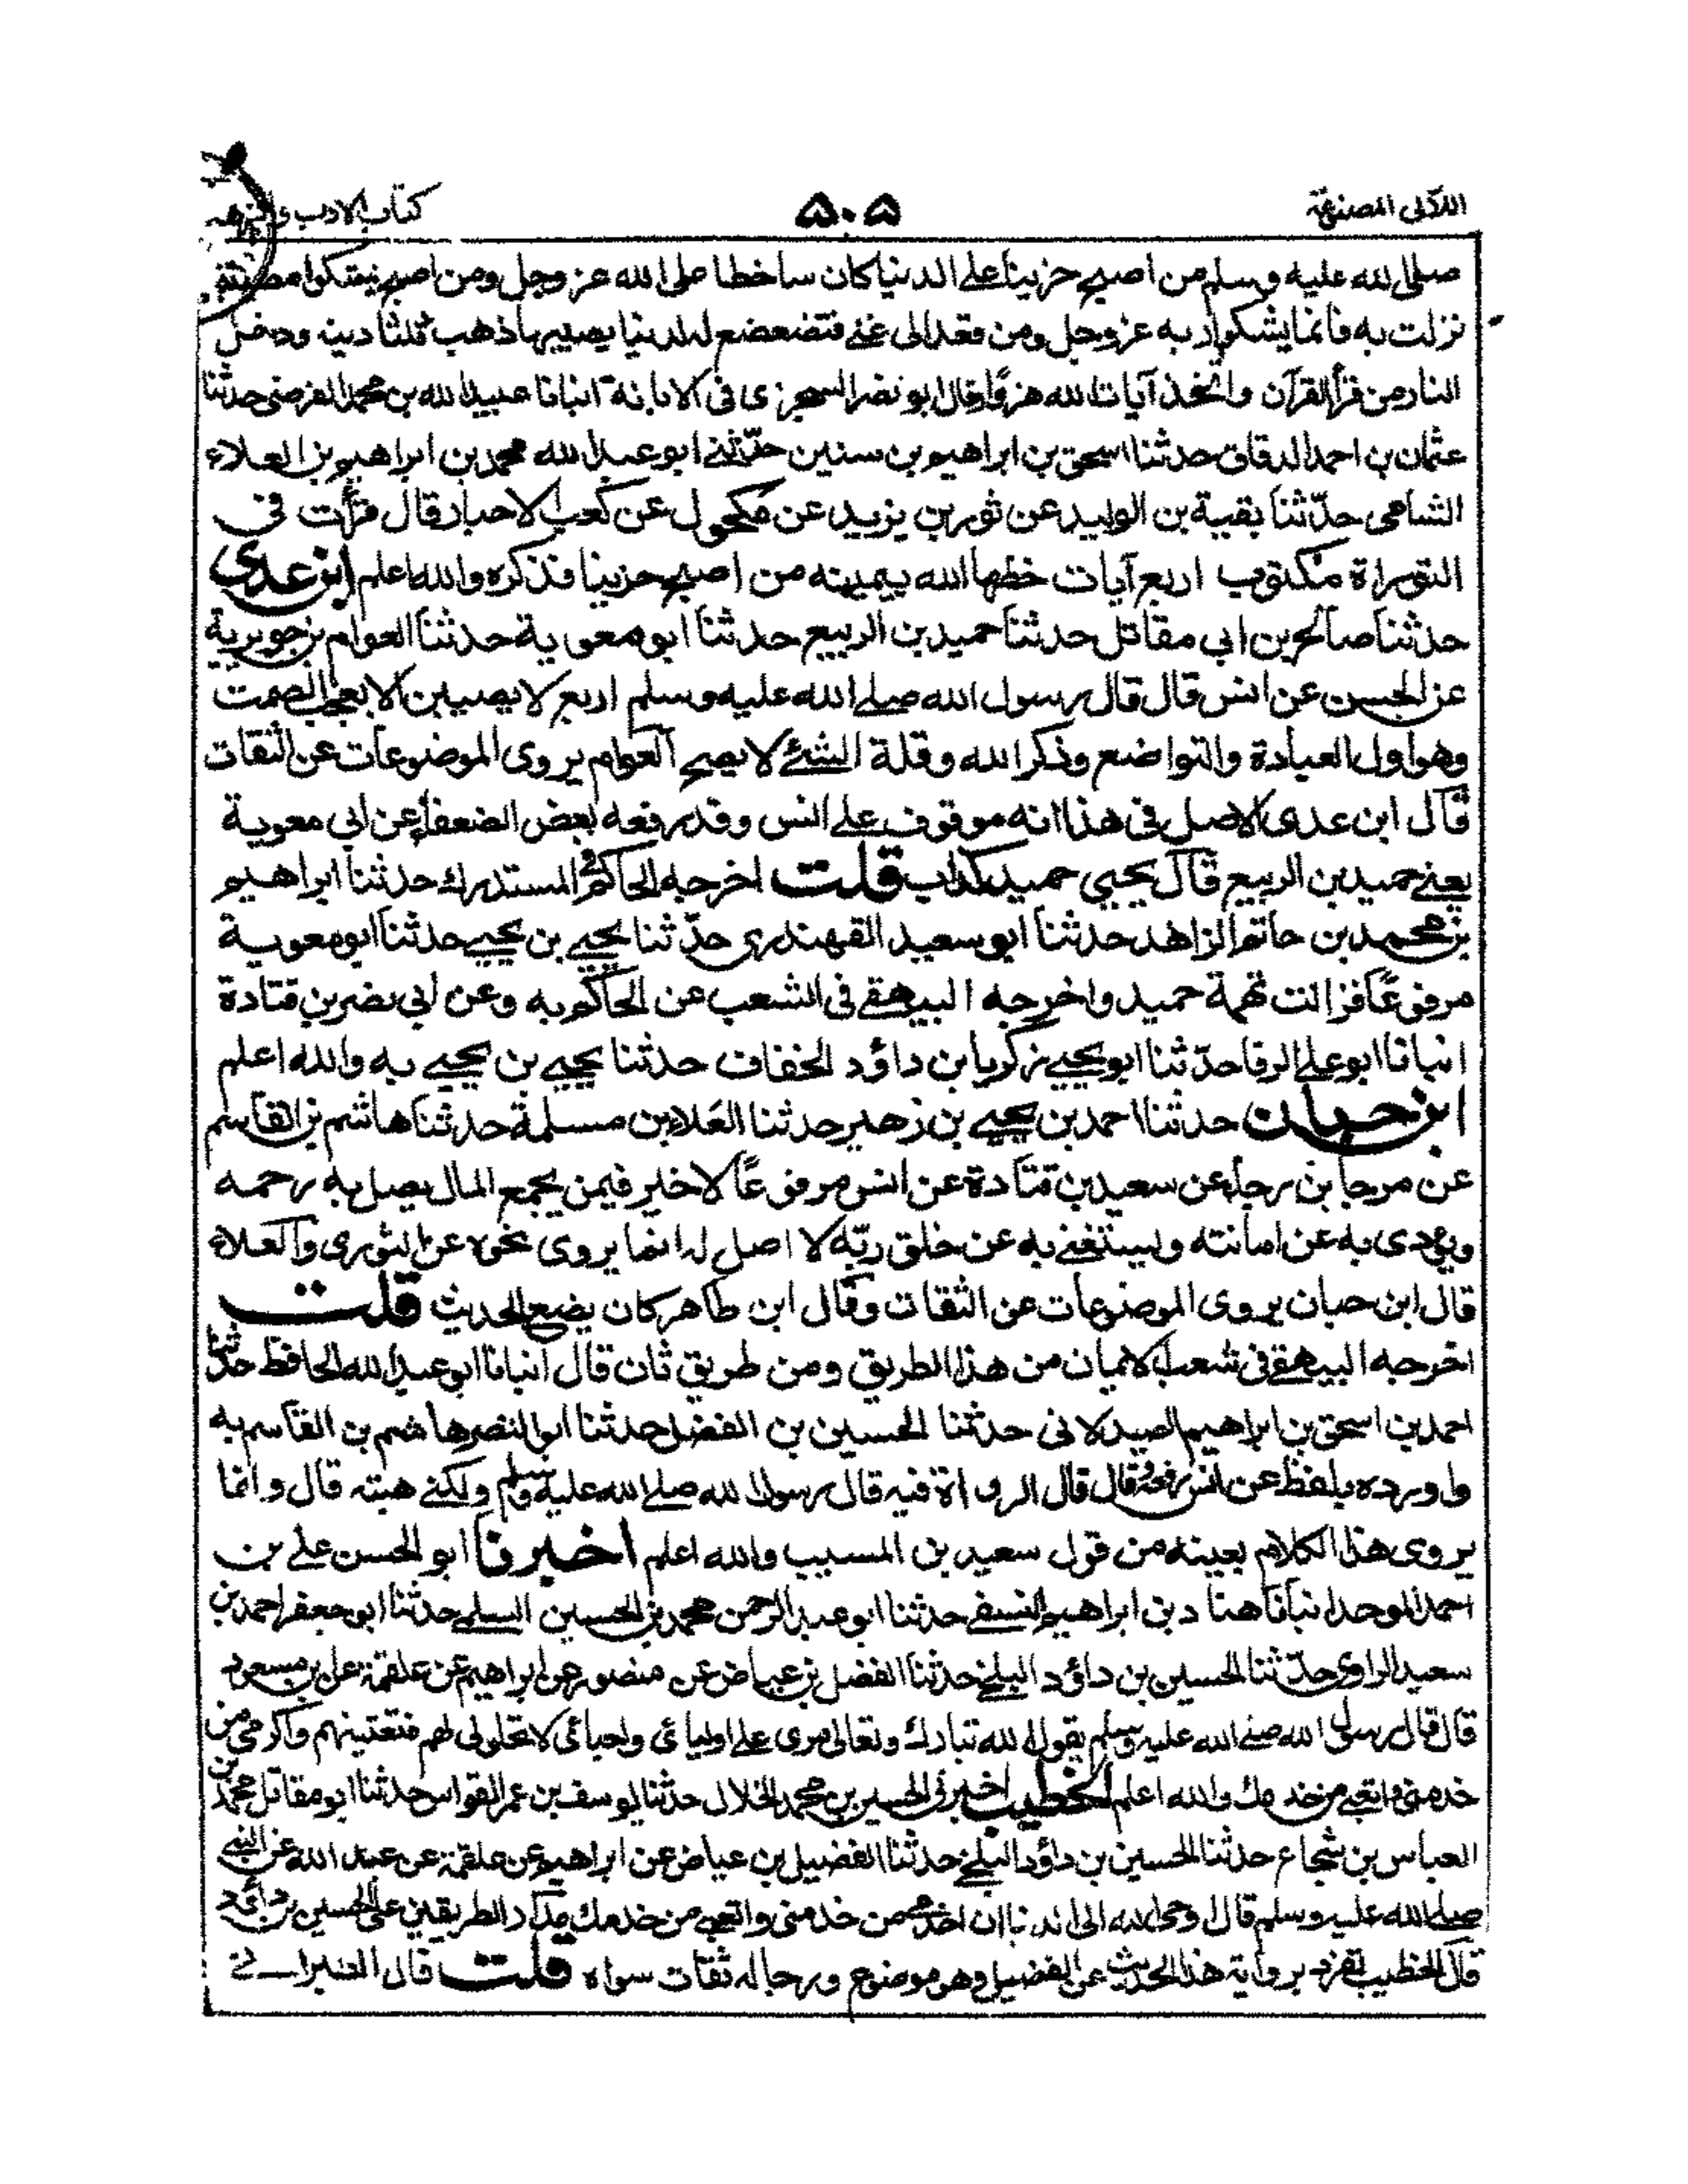 اللآلی المصنوعة ۵۰۵ كتاب الادب والزهد
صلى الله عليه وسلم من اصبح حزينا على الدنيا كان ساخطا على الله عز وجل ومن اصبح يشكوا مصيبة
نزلت به فانما يشكوا ربه عز وجل ومن قعد الى غنى فتضعضع له لدنيا يصيبها ذهب ثلثا دينه ودخل
النار من قرأ القرآن واتخذ آيات الله هزوًا وقال ابو نصر السجزى فى الابانة انبانا عبيد الله بن محمد الفرضى حدثنا
عثمان بن احمد الدقاق حدثنا اسحق بن ابراهيم بن سنين حدّثنى ابو عبد الله محمد بن ابراهيم بن العلاء
الشامى حدّثنا بقية بن الوليد عن ثور بن يزيد عن مكحول عن كعب الاحبار قال قرأت فى
التوراة مكتوب اربع آيات خطها الله بيمينه من اصبح حزينا فذكره والله اعلم ابن عدى
حدثنا صالح بن ابي مقاتل حدثنا حميد بن الربيع حدثنا ابو معوية حدثنا العوام بن جويرية
عن الحسن عن انس قال قال رسول الله صلى الله عليه وسلم اربع لا يصيبن الا بعجب الصمت
وهو اول العبادة والتواضع وذكر الله وقلة الشئ لا يصح العوام يروى الموضوعات عن الثقات
قال ابن عدى الاصل فى هذا انه موقوف على انس وقد رفعه بعض الضعفاء عن ابي معوية
يعنى حميد بن الربيع قال يحيى حميد كذاب قلت اخرجه الحاكم فى المستدرك حدثنا ابراهيم
بن محمد بن حاتم الزاهد حدثنا ابو سعيد القهندرى حدّثنا يحيى بن يحيى حدثنا ابو معوية
مرفوعًا فزالت تهمة حميد واخرجه البيهقى فى الشعب عن الحاكم به وعن ابي نصر بن قتادة
انبانا ابو على الرفا حدّثنا ابو يحيى زكريا بن داؤد الخفاف حدثنا يحيى بن يحيى به والله اعلم
ابن حبان حدثنا احمد بن يحيى بن زهير حدثنا العلاء بن مسلمة حدثنا هاشم بن القاسم
عن مرجا بن رجاء عن سعيد بن قتادة عن انس مرفوعًا لا خير فيمن يجمع المال يصل به رحمه
ويؤدى به عن امانته ويستغنى به عن خلق ربّه لا اصل له انما يروى نحوه عن الثورى والعلاء
قال ابن حبان يروى الموضوعات عن الثقات وقال ابن طاهر كان يضع الحديث قلت
اخرجه البيهقى فى شعب الايمان من هذا الطريق ومن طريق ثان قال انبانا ابو عبد الله الحافظ حدثنا
احمد بن اسحق بن ابراهيم الصيدلانى حدثنا الحسين بن الفضل حدثنا ابو النضر هاشم بن القاسم به
واورده بلفظ عن انس رفعه وقال قال الرواة فيه قال رسول الله صلى الله عليه وسلم ولكنى هبته قال وانما
يروى هذا الكلام بعينه من قول سعيد بن المسيب والله اعلم اخبرنا ابو الحسن على بن
احمد الموحد انبانا هناد بن ابراهيم النسفى حدثنا ابو عبد الرحمن محمد بن الحسين السلمى حدثنا ابو جعفر احمد بن
سعيد الرازى حدّثنا الحسين بن داؤد البلخى حدثنا الفضل بن عياض عن منصور عن ابراهيم عن علقمة عن ابن مسعود
قال قال رسول الله صلى الله عليه وسلم يقول الله تبارك وتعالى مرى على اوليائى واحبائى لا تحلولى لهم فتفتنيهم واكرمى من
خدمنى واتعبى من خدمك والله اعلم الخطيب اخبرنى الحسين بن محمد الخلال حدثنا يوسف بن عمر القواس حدثنا ابو مقاتل محمد بن
العباس بن شجاع حدثنا الحسين بن داؤد البلخى حدثنا الفضيل بن عياض عن ابراهيم عن علقمة عن عبد الله عن النبى
صلى الله عليه وسلم قال اوحى الله الى الدنيا ان اخدمى من خدمنى واتعبى من خدمك مدار الطريقين على الحسين بن داؤد
قال الخطيب تفرد برواية هذا الحديث عن الفضيل وهو موضوع ورجاله ثقات سواه قلت قال